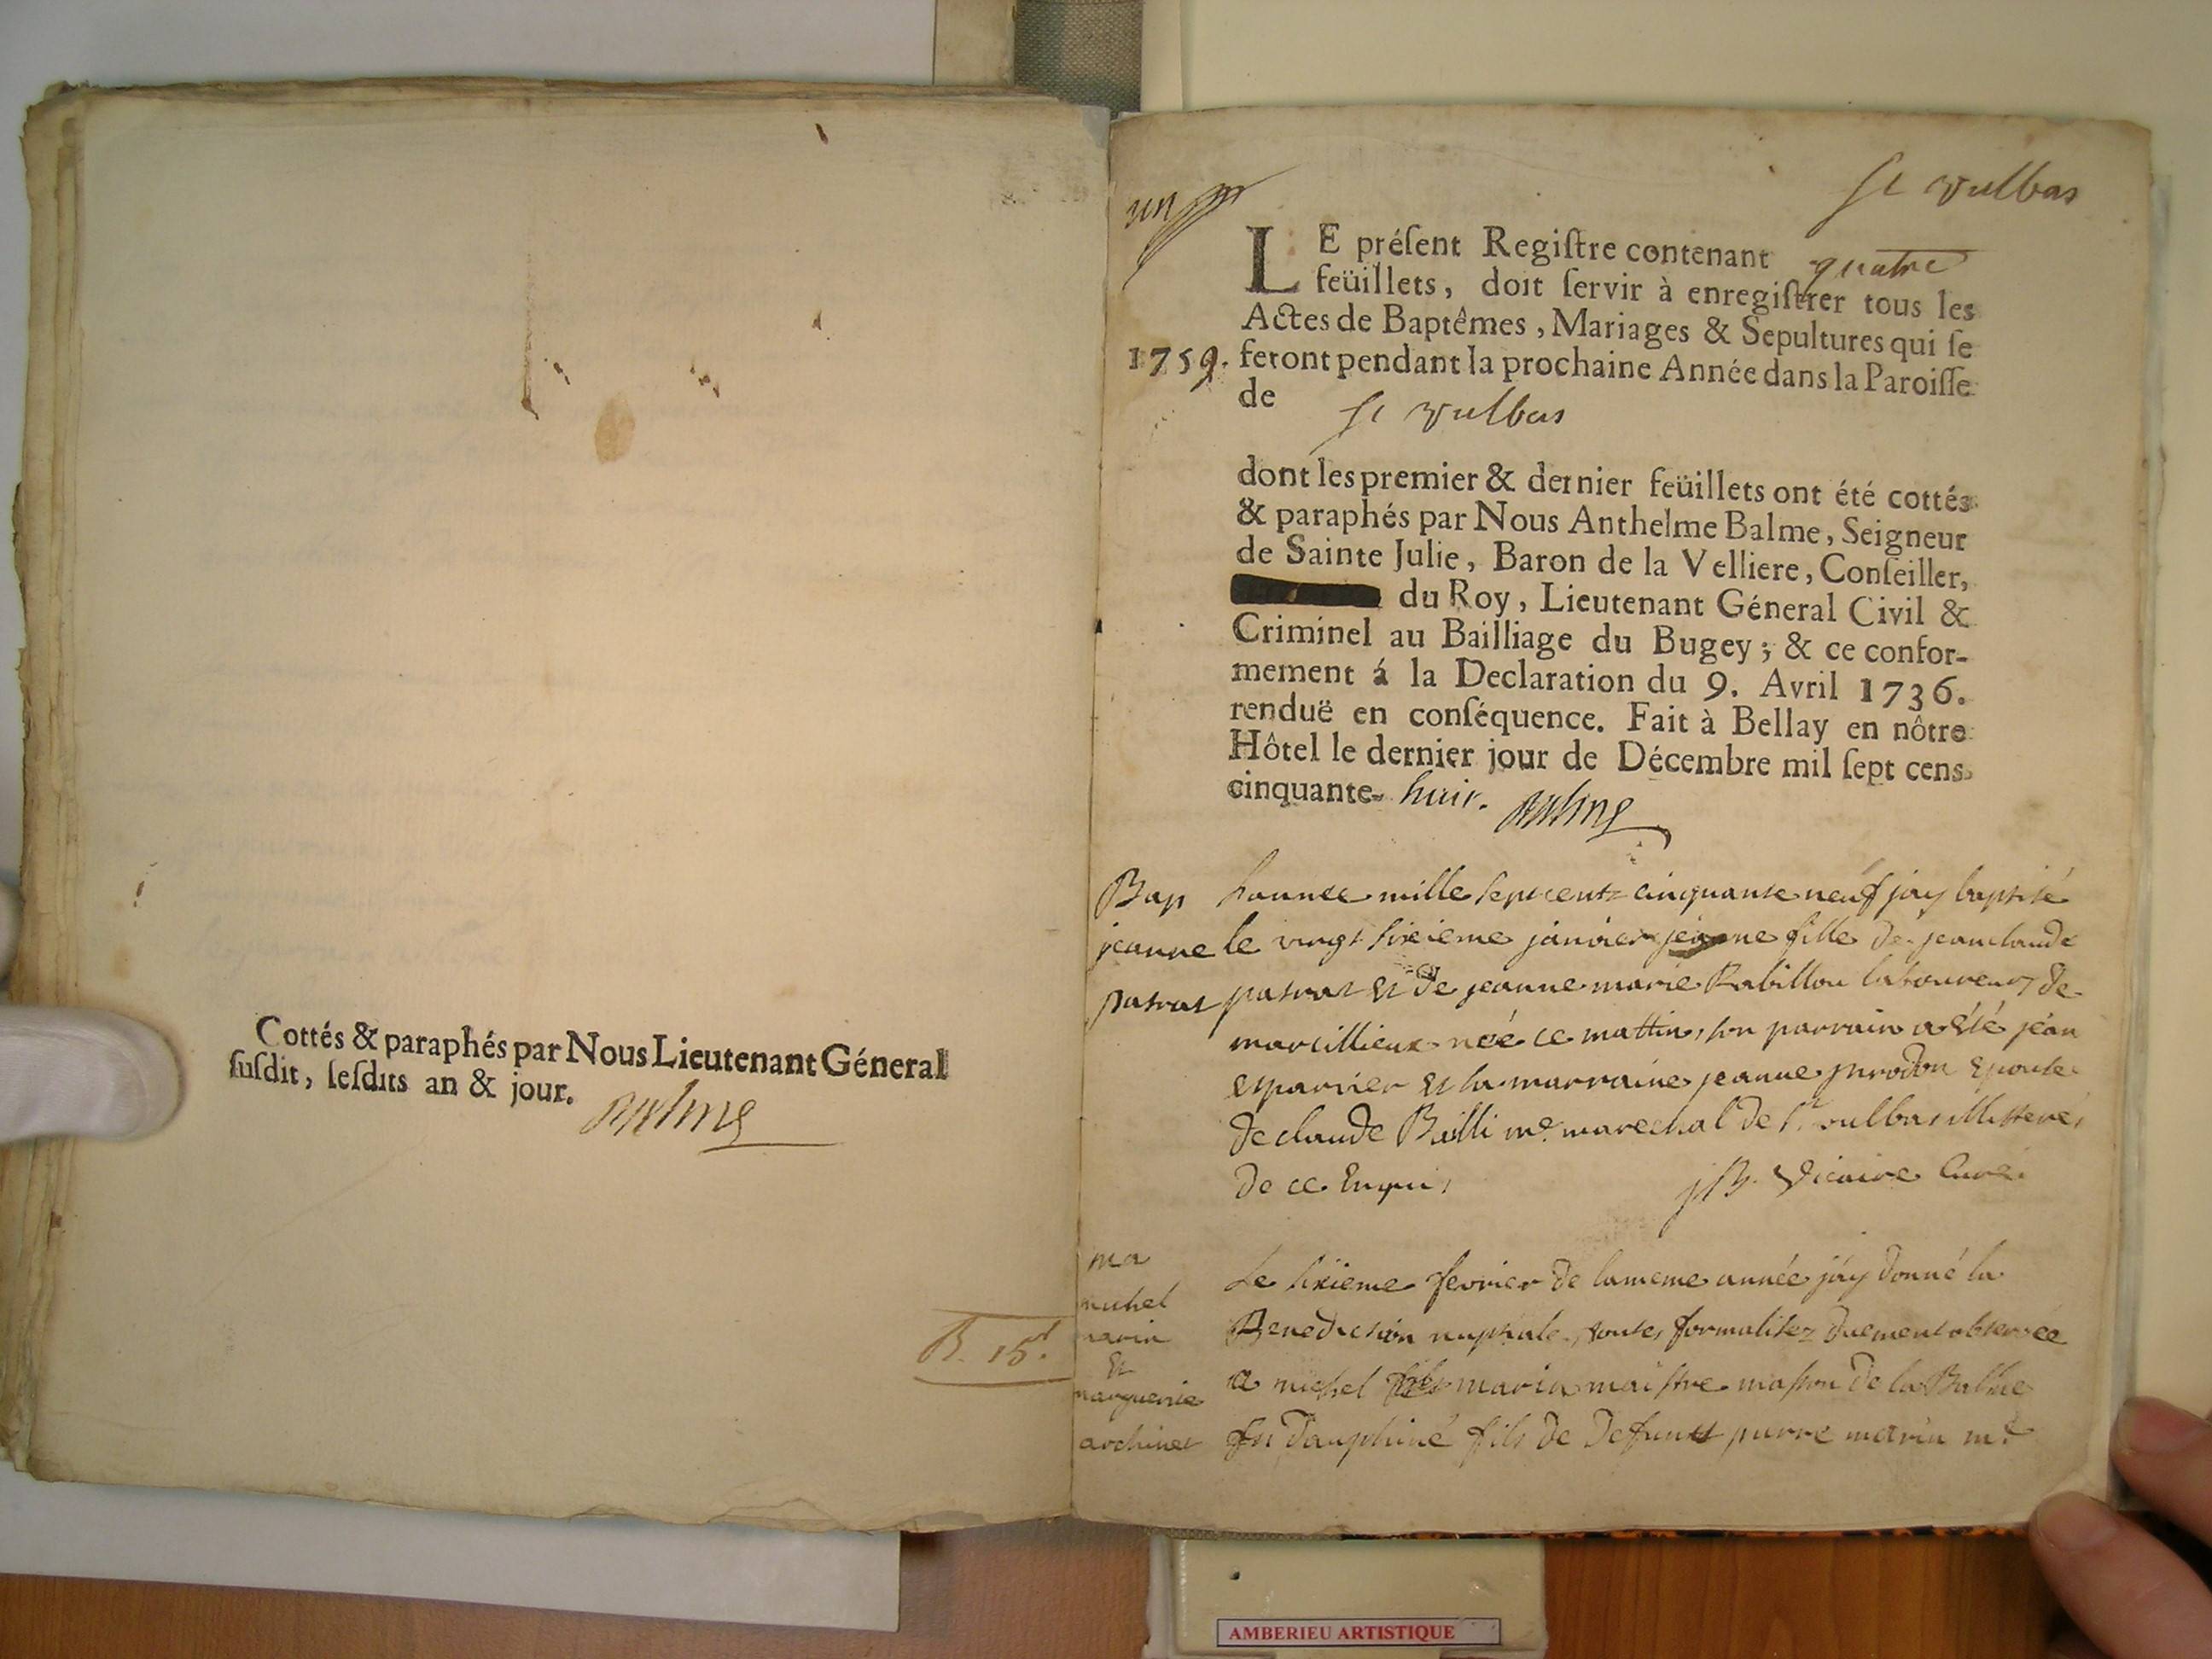 Cottés & paraphés par Nous Lieutenant Géneral
ſuſdit, leſdits an & jour.
Balme
R. 15.
un
St vulbas
LE préſent Regiſtre contenant quatre
feüillets, doit ſervir à enregiſtrer tous les
Actes de Baptêmes, Mariages & Sepultures qui ſe
1759. feront pendant la prochaine Année dans la Paroiſſe
de St vulbas
dont les premier & dernier feüillets ont été cottés
& paraphés par Nous Anthelme Balme, Seigneur
de Sainte Julie, Baron de la Velliere, Conſeiller,
du Roy, Lieutenant Géneral Civil &
Criminel au Bailliage du Bugey; & ce confor-
mement á la Declaration du 9. Avril 1736.
renduë en conſéquence. Fait à Bellay en nôtre
Hôtel le dernier jour de Décembre mil ſept cens
cinquante- huit. Balme
Bap
jeanne
patrat
lannee mille sept centz cinquante neuf jay baptisé
le vingt sixieme janvier jeanne fille de jean claude
patrat et de jeanne marie Rabillou laboureur de
marcillieux neé ce mattin, son parrain a eté jean
esparvier et la marraine jeanne prodon epouse
de claude Bailli me. marechal de st vulbas illiteré,
de ce Enquis,
jB. Vicaire Curé.
ma
michel
marin
Et
marguerite
archinet
Le sixieme fevrier de la meme année jay donné la
Benediction nuptiale, toutes formalitez duement observée
a michel marin maistre masson de la Balme
En dauphiné fils de Defunct pierre marin me.
AMBERIEU ARTISTIQUE